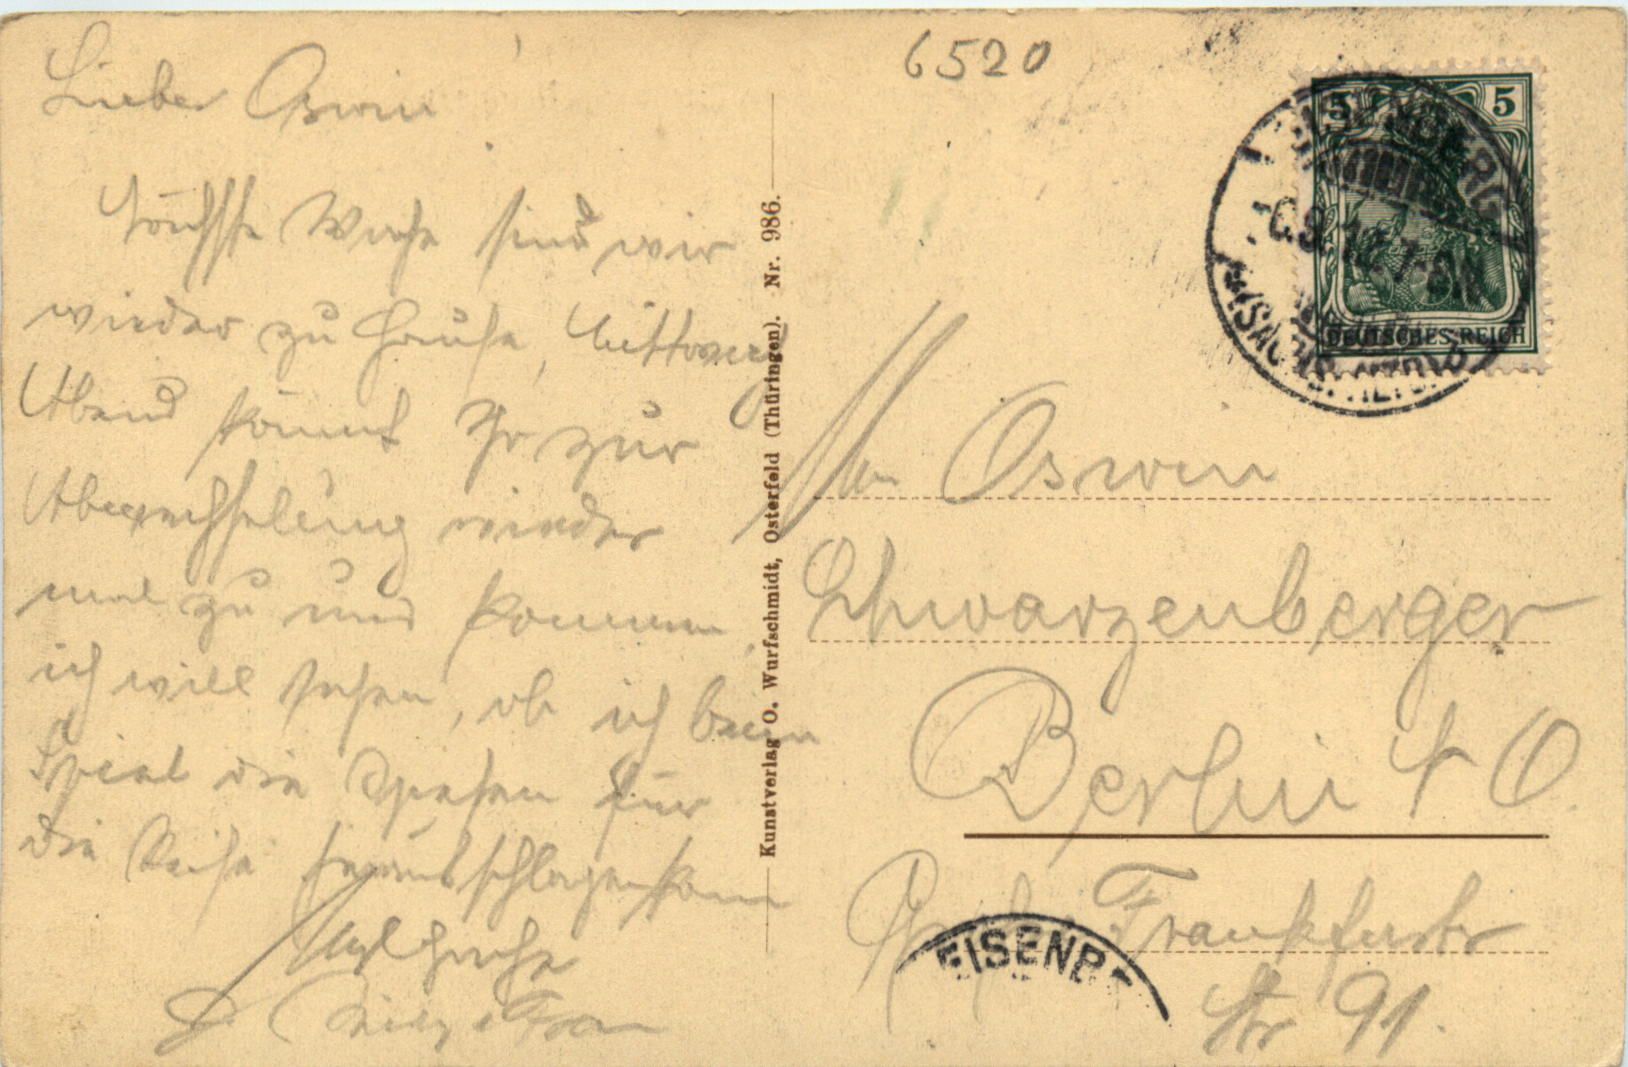 6520
Lieber Oswin
Nächste Woche sind wir
wieder zu Hause, Mittwoch
Abend könnt Ihr zur
Abwechselung wieder
mal zu uns kommen,
ich will sehen, ob ich beim
Spiel die Spesen für
die Reise herausschlagen kann
Herzl Grüße
Frau
Kunstverlag O. Wurfschmidt, Osterfeld (Thüringen). Nr. 986.
5 5
DEUTSCHES REICH
EISENBERG
Oswin
Schwarzenberger
Berlin O.
Frankfurter
Str 91.
EISENB